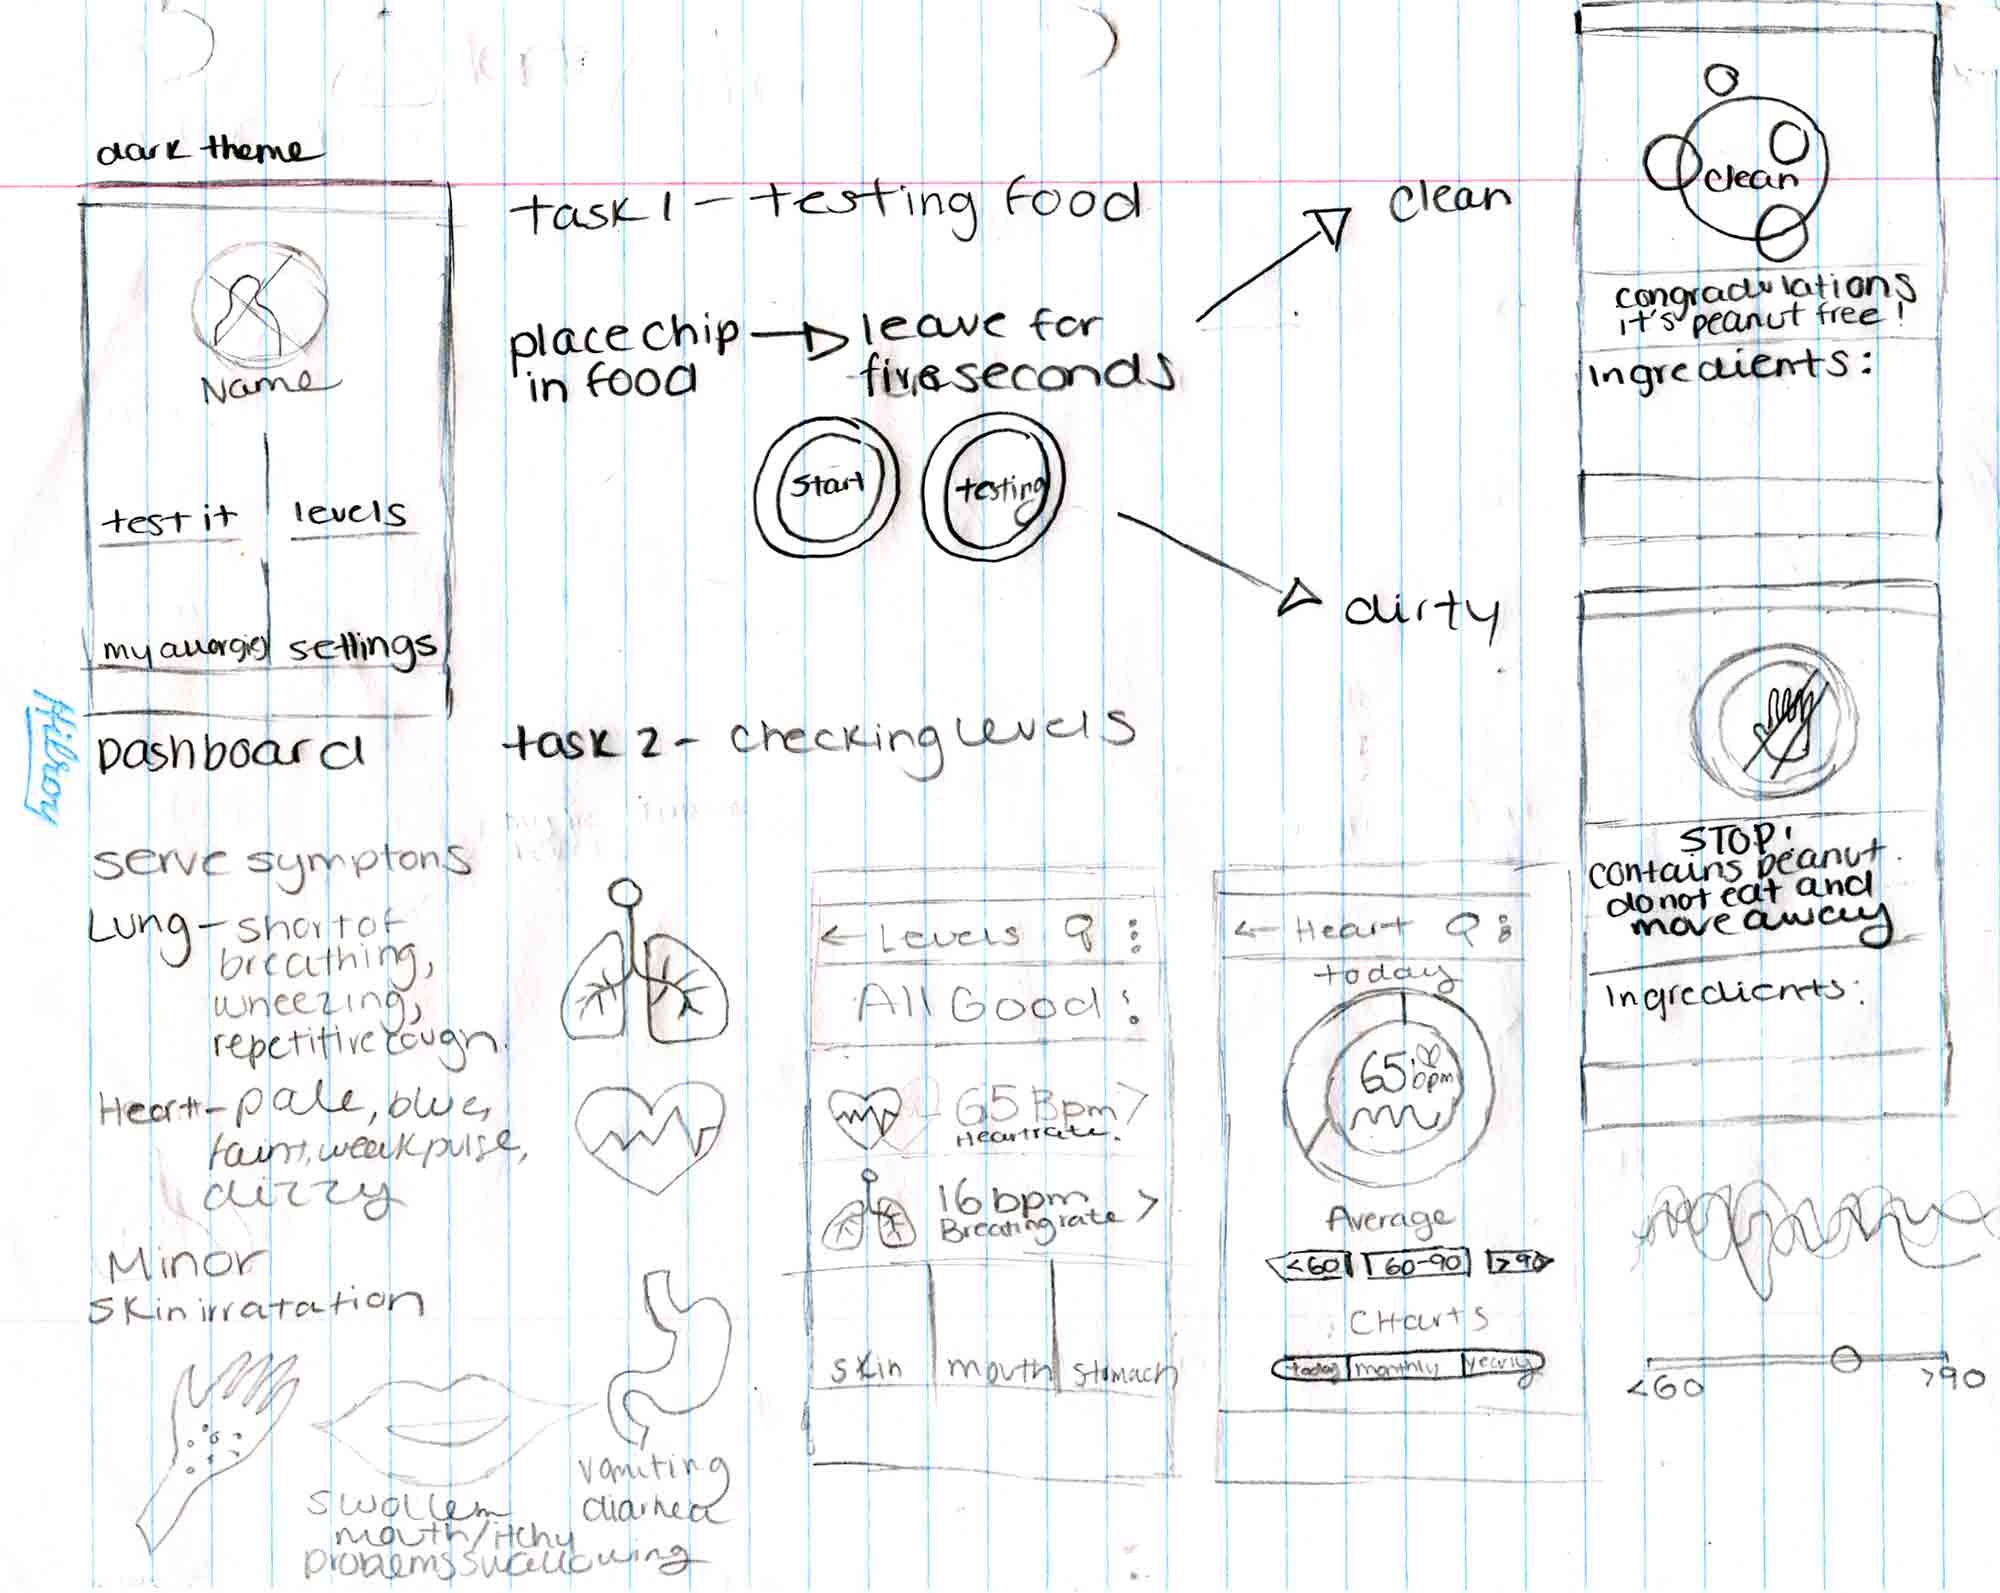 dark theme
Name
test it
levels
my allergies
settings
Dashboard
Hilroy
task 1 - testing food
place chip
in food
leave for
five seconds
Start
testing
clean
dirty
clean
congradulations
it's peanut free!
Ingredients:
STOP!
contains peanut.
do not eat and
move away
Ingredients:
task 2 - checking levels
serve symptons
Lung - short of
breathing,
wheezing,
repetitive cough.
Heart - pale, blue,
faint, weak pulse,
dizzy
Minor
skin irratation
swollem
mouth/itchy
problems swallowing
vomiting
diarhea
← Levels
All Good
65 Bpm >
Heartrate.
16 bpm >
Breatingrate
skin
mouth
stomach
← Heart
today
65 bpm
Average
<60
60-90
>90
Charts
today
monthly
yearly
<60
>90